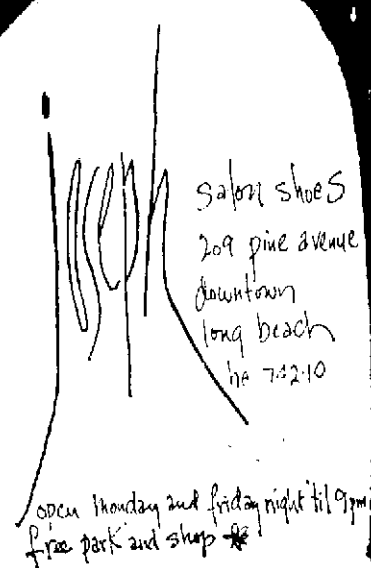 salon shoes
209 pine avenue
downtown
long beach
he 742·10
open monday and friday night 'til 9pm
free park and shop